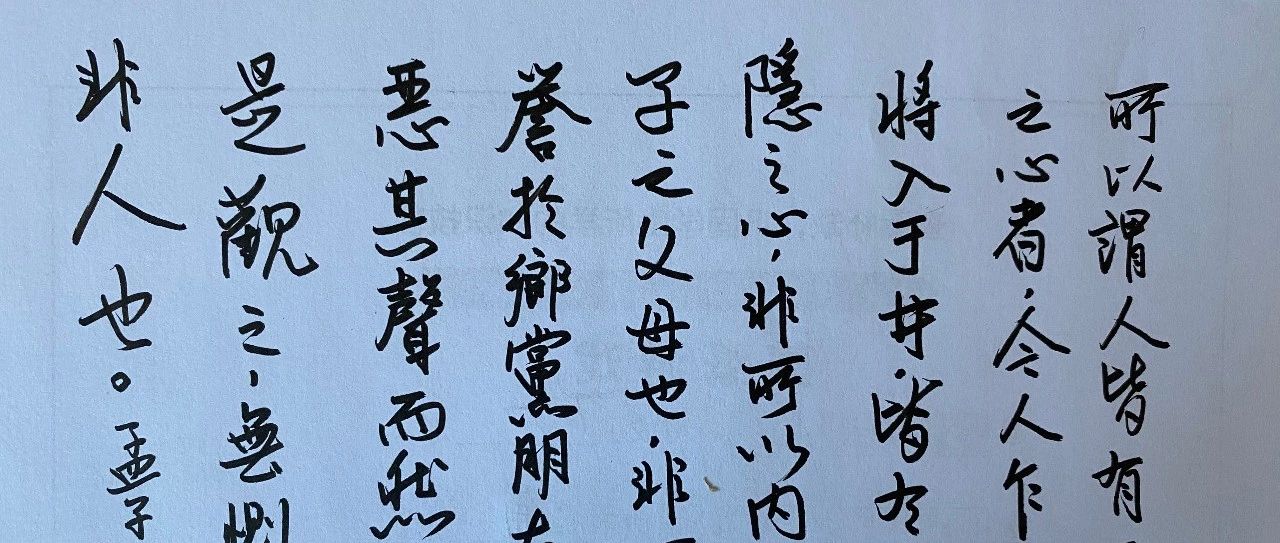 所以謂人皆有
之心者，今人乍
將入于井，皆有
隱之心，非所以内
子之父母也，非
譽於鄉黨朋
惡其聲而然
是觀之，無惻
非人也。孟子